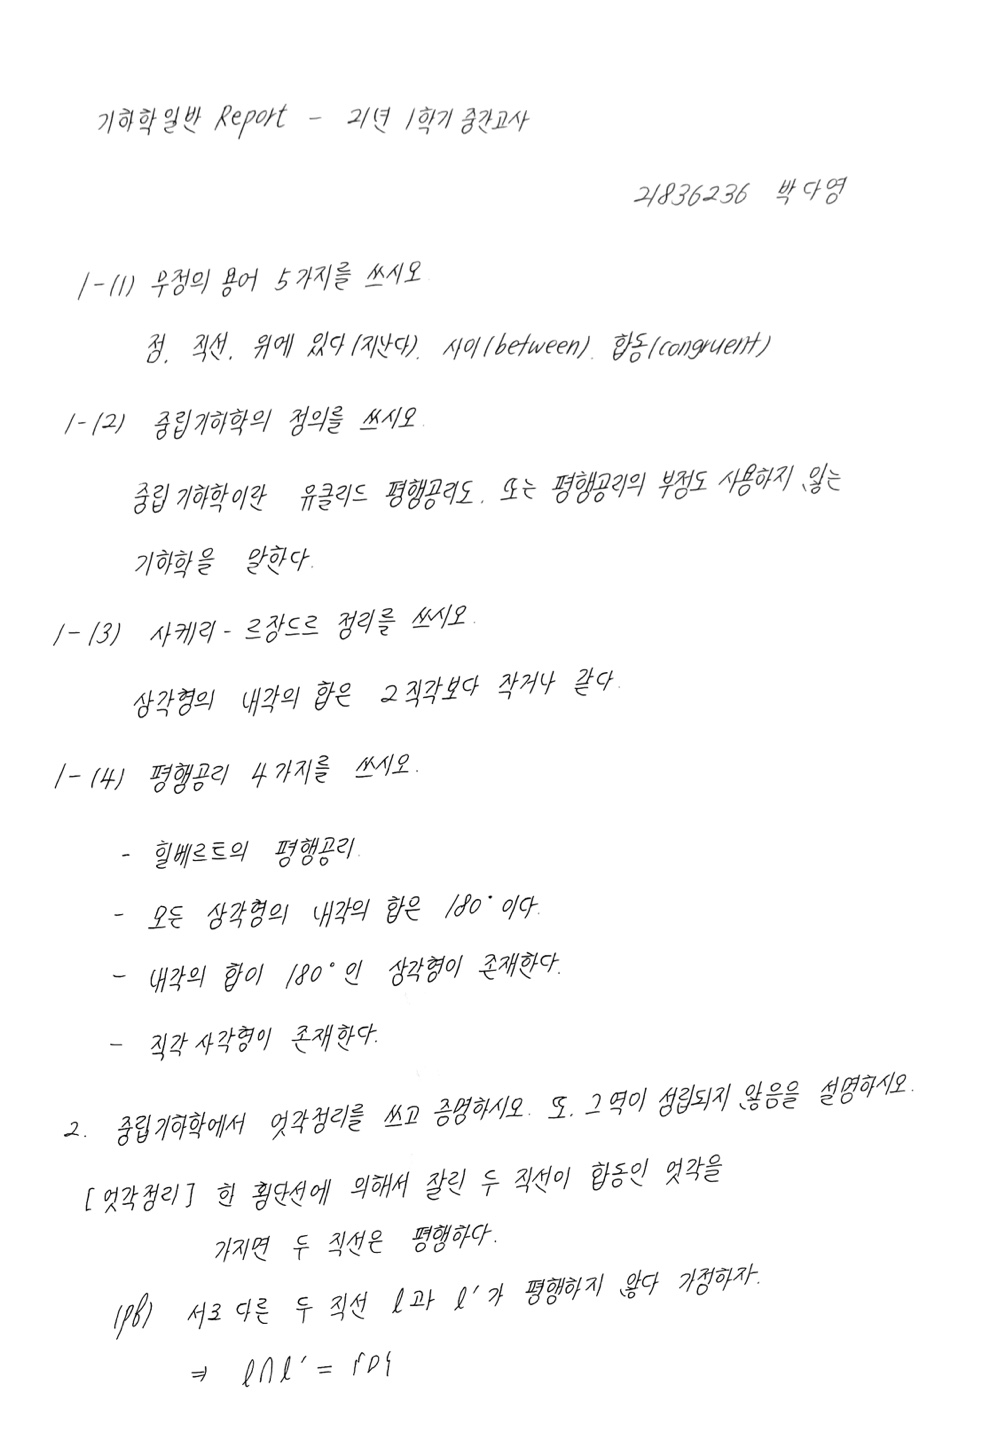 기하학일반 Report - 21년 1학기 중간고사
21836236 박다영
1-(1) 무정의 용어 5가지를 쓰시오.
점, 직선, 위에 있다(지난다), 사이(between), 합동(congruent)
1-(2) 중립기하학의 정의를 쓰시오.
중립 기하학이란 유클리드 평행공리도, 또는 평행공리의 부정도 사용하지 않는
기하학을 말한다.
1-(3) 사케리-르장드르 정리를 쓰시오.
삼각형의 내각의 합은 2직각보다 작거나 같다.
1-(4) 평행공리 4가지를 쓰시오.
- 힐베르트의 평행공리.
- 모든 삼각형의 내각의 합은 180°이다.
- 내각의 합이 180°인 삼각형이 존재한다.
- 직각사각형이 존재한다.
2. 중립기하학에서 엇각정리를 쓰고 증명하시오. 또, 그 역이 성립되지 않음을 설명하시오.
[엇각정리] 한 횡단선에 의해서 잘린 두 직선이 합동인 엇각을
가지면 두 직선은 평행하다.
(pf) 서로 다른 두 직선 l과 l'가 평행하지 않다 가정하자.
⇒ l∩l' = {D}